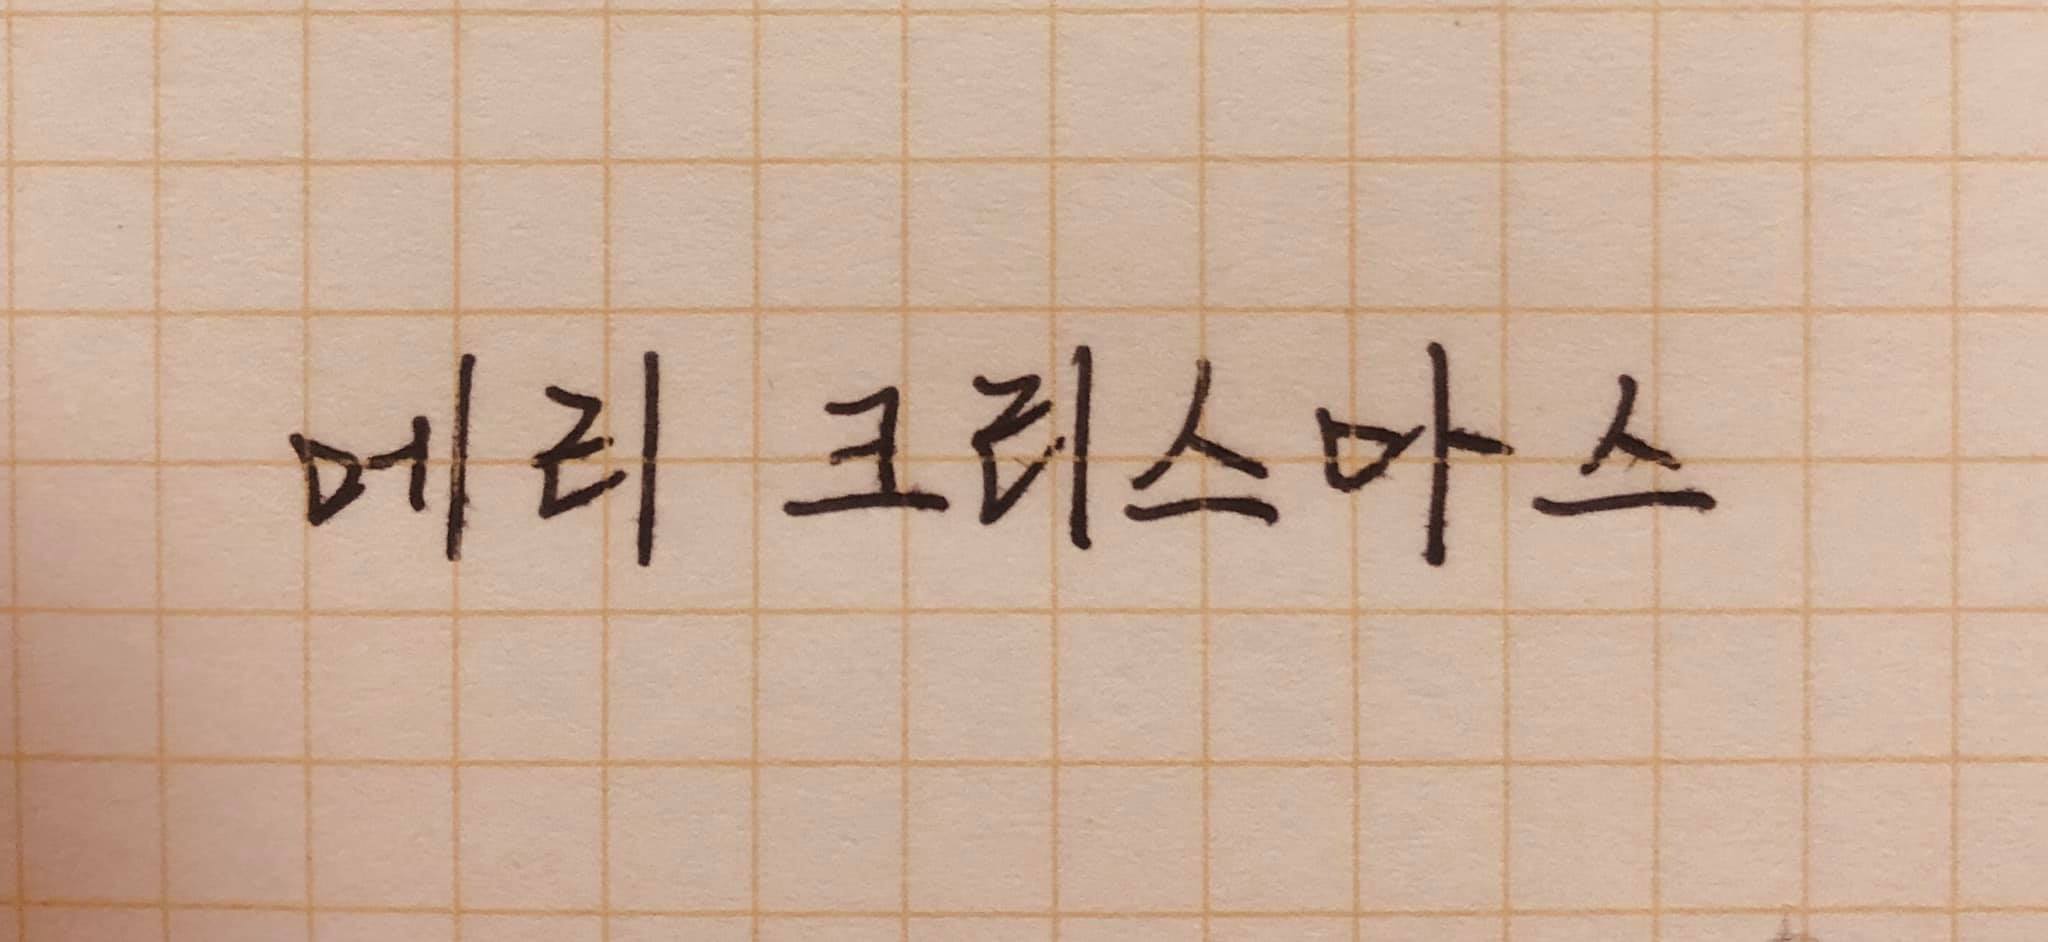 메리 크리스마스